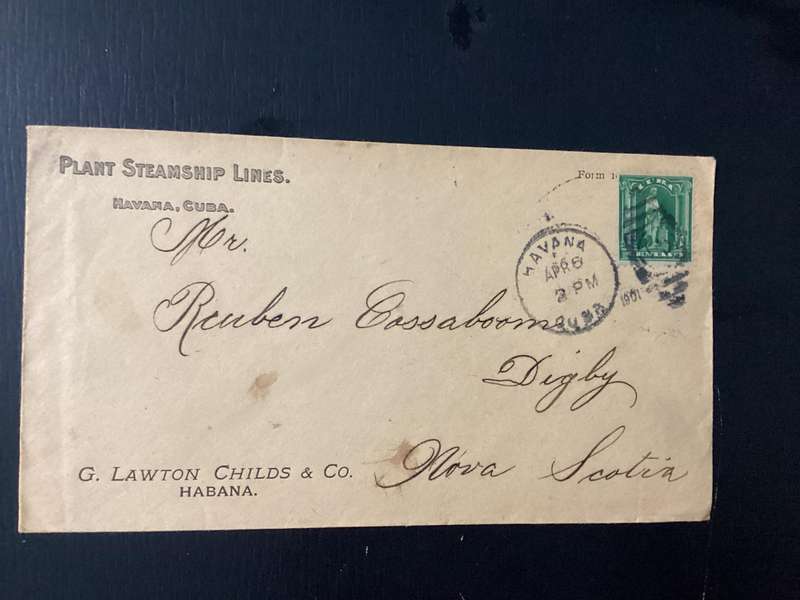 PLANT STEAMSHIP LINES.
HAVANA, CUBA.
Form
CUBA
HAVANA
APR 6
2 PM
CUBA
1901
Mr.
Reuben Cossaboom
Digby
Nova Scotia
G. LAWTON CHILDS & CO.
HABANA.